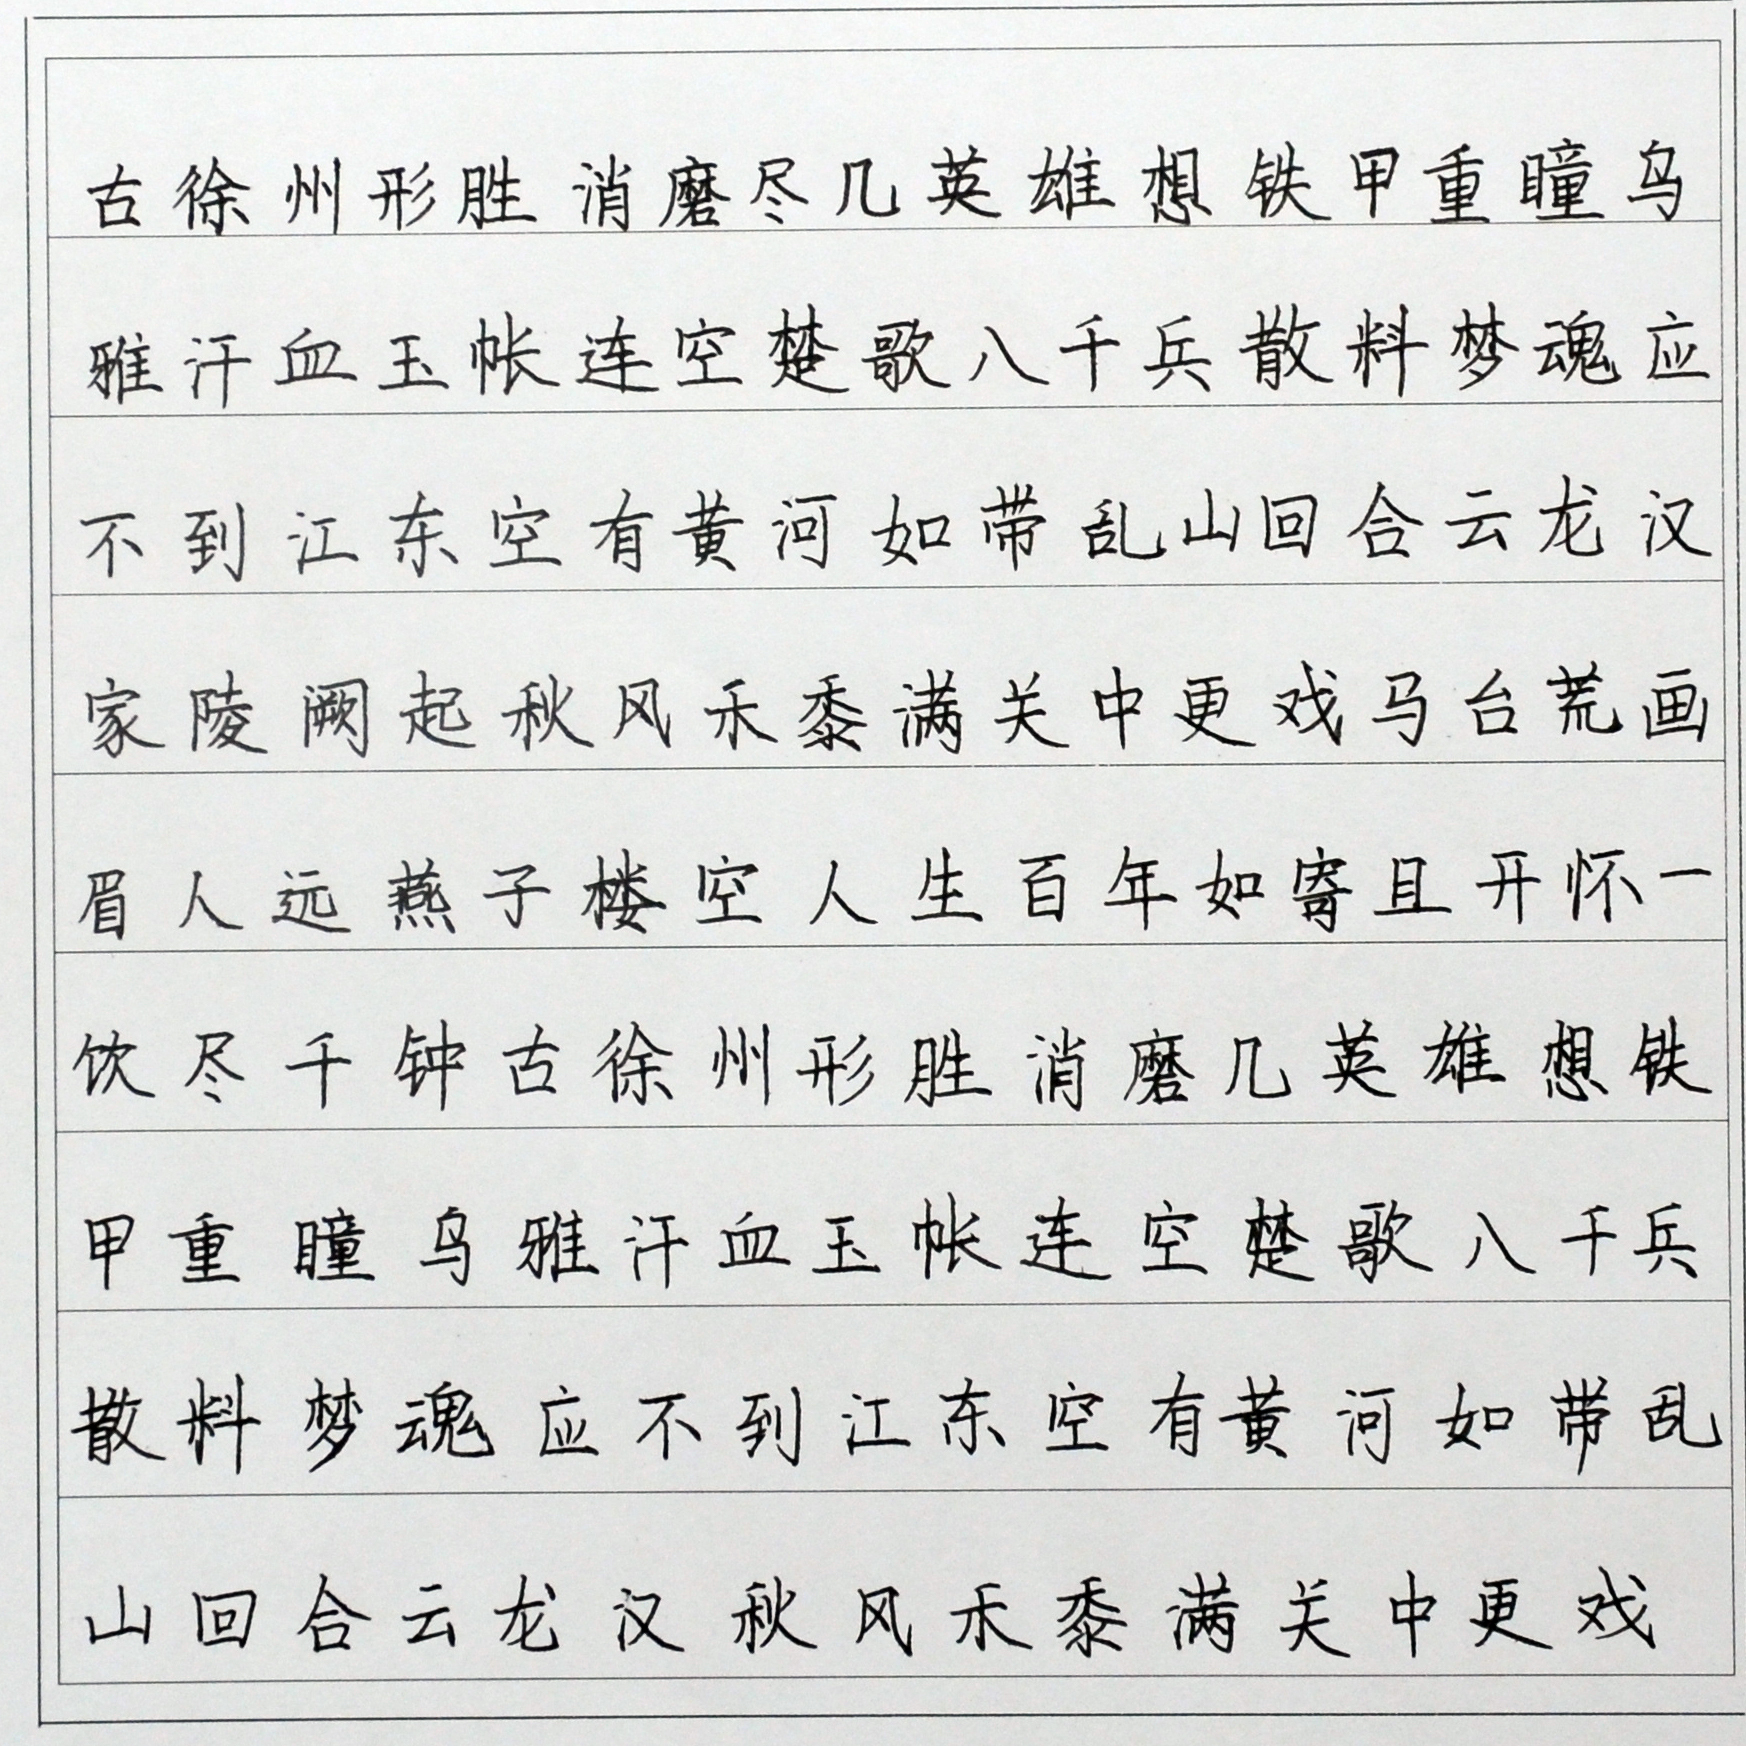 古徐州形胜消磨尽几英雄想铁甲重瞳乌
雅汗血玉帐连空楚歌八千兵散料梦魂应
不到江东空有黄河如带乱山回合云龙汉
家陵阙起秋风禾黍满关中更戏马台荒画
眉人远燕子楼空人生百年如寄且开怀一
饮尽千钟古徐州形胜消磨几英雄想铁
甲重瞳乌雅汗血玉帐连空楚歌八千兵
散料梦魂应不到江东空有黄河如带乱
山回合云龙汉秋风禾黍满关中更戏